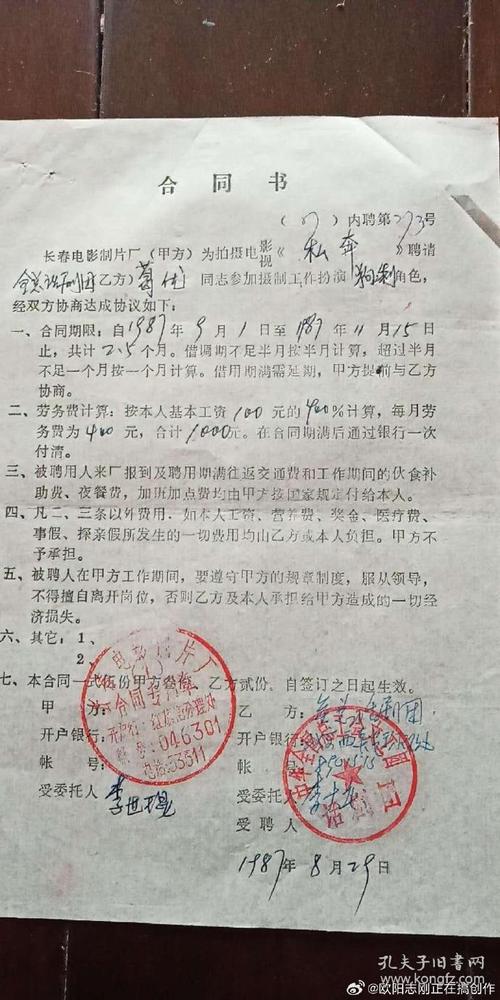 合同书
(87)内聘第273号
长春电影制片厂(甲方)为拍摄电影视《私奔》聘请
全总话剧团(乙方)葛优同志参加摄制工作扮演角色,
经双方协商达成协议如下:
一、合同期限:自1987年9月1日至1987年11月15日
止,共计2.5个月。借调期不足半月按半月计算,超过半月
不足一个月按一个月计算。借用期满需延期,甲方提前与乙方
协商。
二、劳务费计算:按本人基本工资100元的400%计算,每月劳
务费为400元,合计1000元。在合同期满后通过银行一次
付清。
三、被聘用人来厂报到及聘用期满往返交通费和工作期间的伙食补
助费、夜餐费,加班加点费均由甲方按国家规定付给本人。
四、凡二、三条以外费用,如本人工资、营养费、奖金、医疗费、
事假、探亲假所发生的一切费用均由乙方或本人负担。甲方不
予承担。
五、被聘人在甲方工作期间,要遵守甲方的规章制度,服从领导,
不得擅自离开岗位,否则乙方及本人承担给甲方造成的一切经
济损失。
六、其它:1、
2、
七、本合同一式伍份甲方叁份,乙方贰份,自签订之日起生效。
甲方:
乙方:全总话剧团
开户银行:
开户银行:
帐号:
帐号:
受委托人:李世
受委托人:李
受聘人
1987年8月29日
电影制片厂
合同专用章
046301
电话:53311
中华全国总工会
话剧团
孔夫子旧书网
kongfz.com
@欧阳志刚正在搞创作